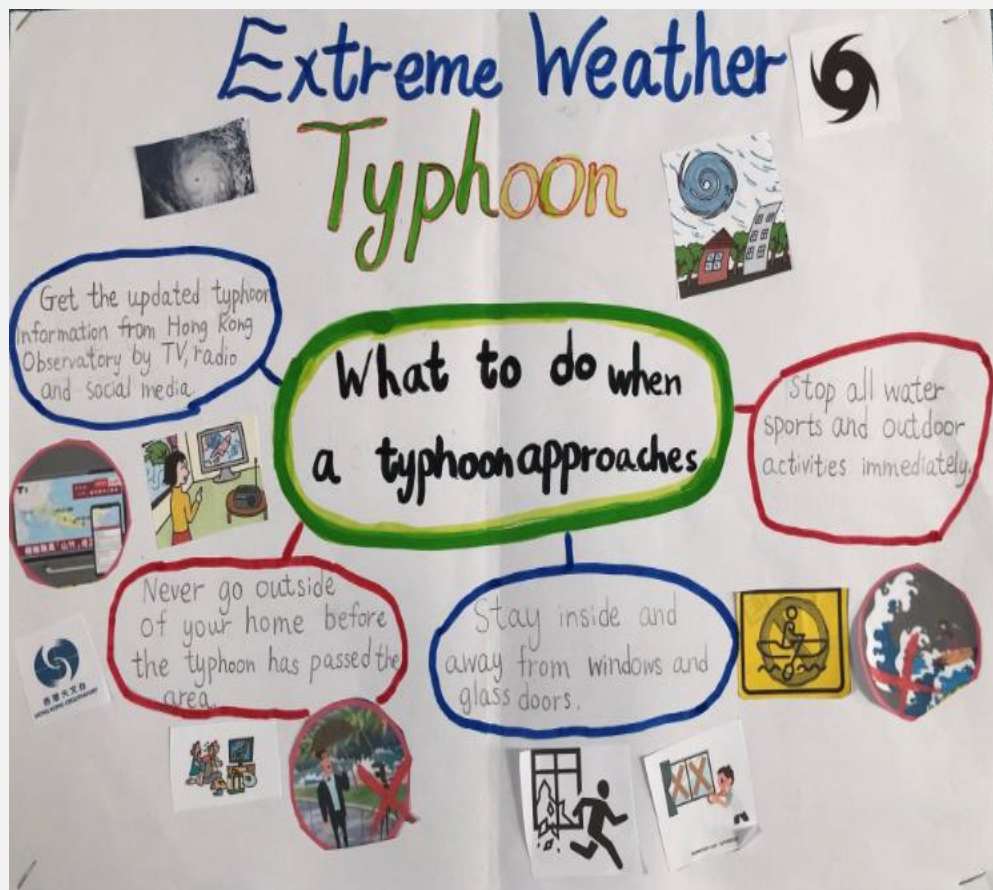 Extreme Weather
Typhoon
Get the updated typhoon
information from Hong Kong
Observatory by TV, radio
and social media.
What to do when
a typhoon approaches
Stop all water
sports and outdoor
activities immediately.
Never go outside
of your home before
the typhoon has passed the
area.
Stay inside and
away from windows and
glass doors.
香港天文台
HONG KONG OBSERVATORY